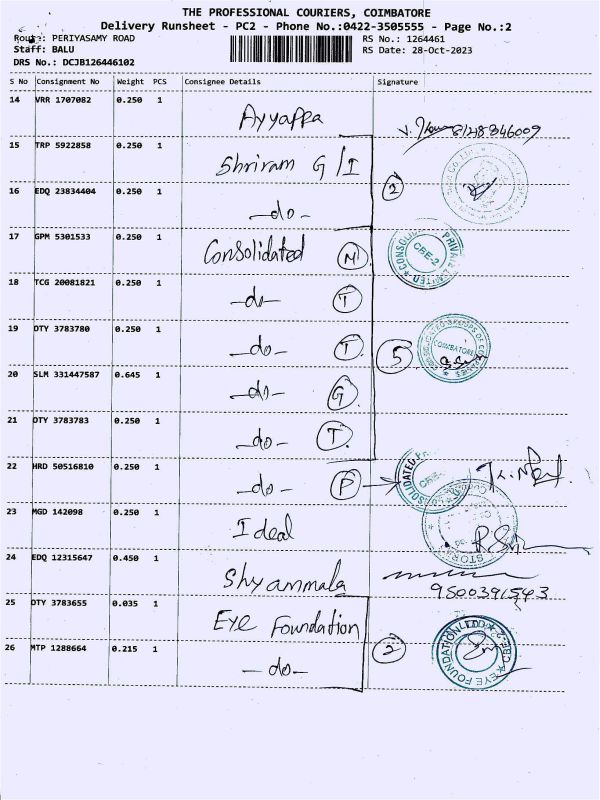 THE PROFESSIONAL COURIERS, COIMBATORE
Delivery Runsheet - PC2 - Phone No.:0422-3505555 - Page No.:2
Route: PERIYASAMY ROAD RS No.: 1264461
Staff: BALU RS Date: 28-Oct-2023
DRS No.: DCJB126446102
S No Consignment No Weight PCS Consignee Details Signature
14 VRR 1707082 0.250 1 Ayyappa 8128846009
15 TRP 5922858 0.250 1 Shriram G/I
2
16 EDQ 23834404 0.250 1 -do-
17 GPM 5301533 0.250 1 Consolidated M CBE-2
18 TCG 20081821 0.250 1 -do- T
19 OTY 3783780 0.250 1 -do- T 5 COIMBATORE
20 SLM 331447587 0.645 1 -do- G
21 OTY 3783783 0.250 1 -do- T
22 HRD 50516810 0.250 1 -do- P
23 MGD 142098 0.250 1 Ideal
24 EDQ 12315647 0.450 1 Shyammala 9500391543
25 OTY 3783655 0.035 1 Eye Foundation
2 EYE FOUNDATION LTD CBE-2
26 MTP 1288664 0.215 1 -do-